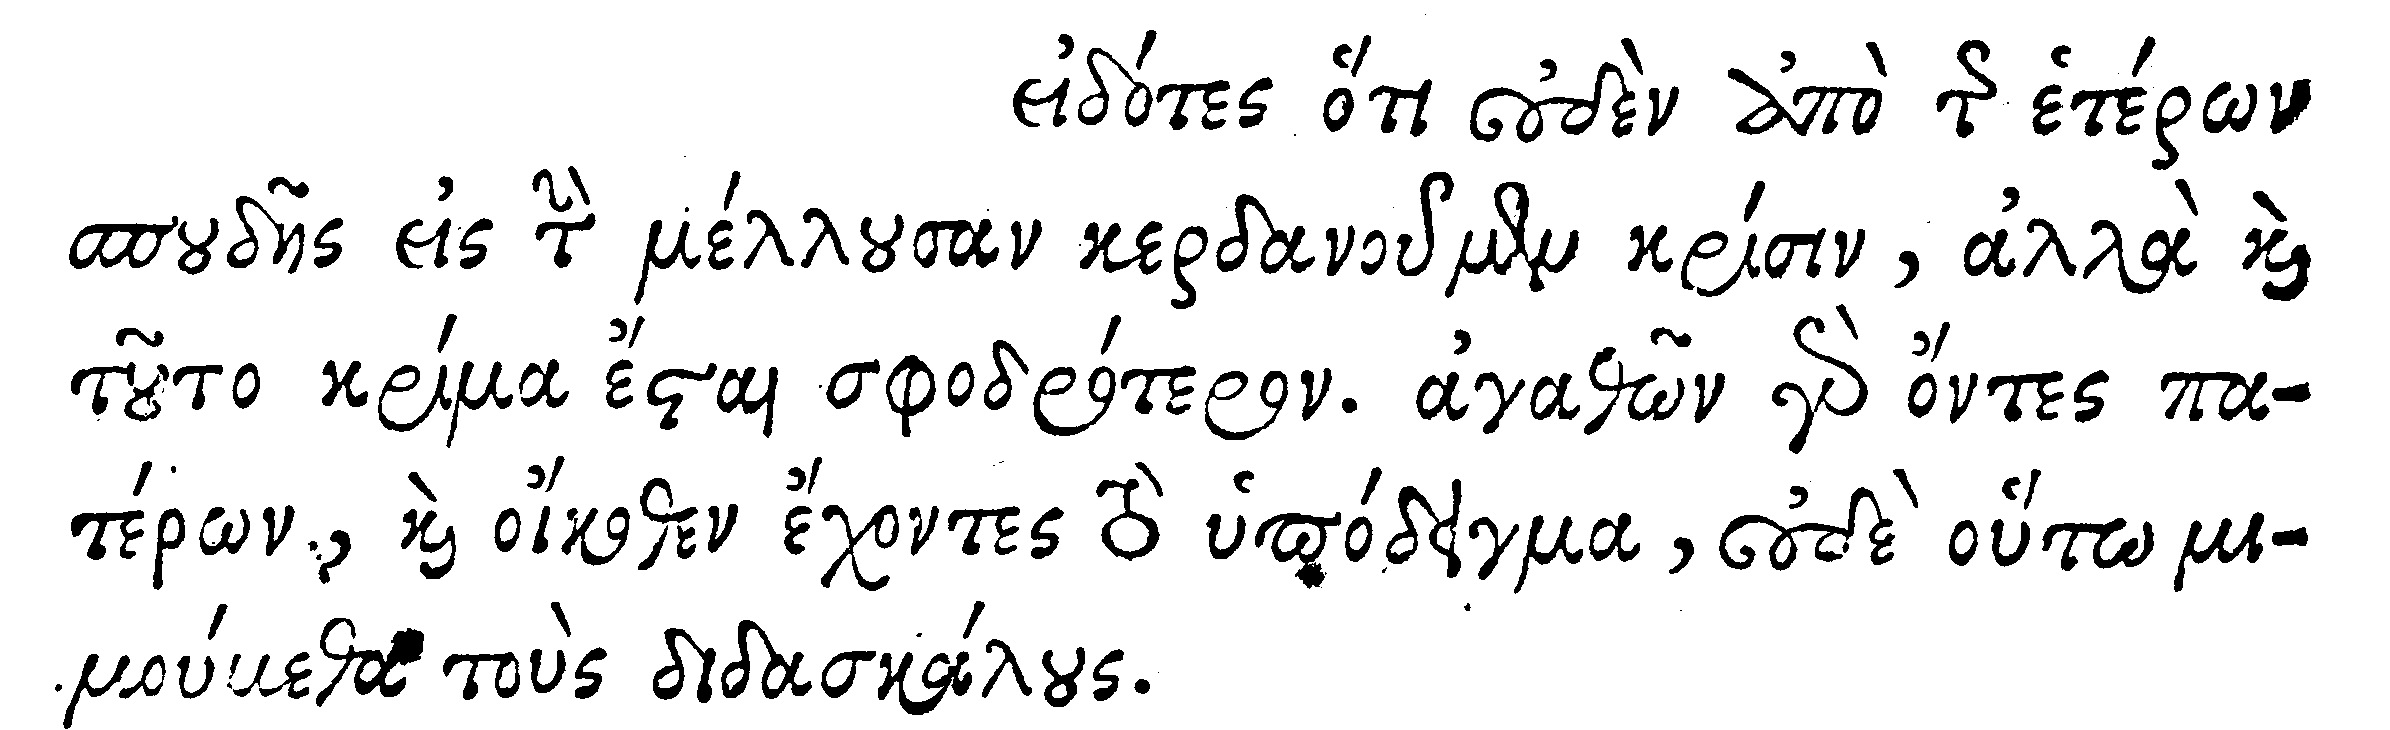 εἰδότες ὅτι οὐδὲν ἀπὸ τῆς ἑτέρων
σπουδῆς εἰς τὴν μέλλουσαν κερδανοῦμεν κρίσιν, ἀλλὰ καὶ
τοῦτο κρίμα ἔσται σφοδρότερον. ἀγαθῶν γὰρ ὄντες πα-
τέρων, καὶ οἴκοθεν ἔχοντες τὸ ὑπόδειγμα, οὐδὲ οὕτω μι-
μούμεθα τοὺς διδασκάλους.